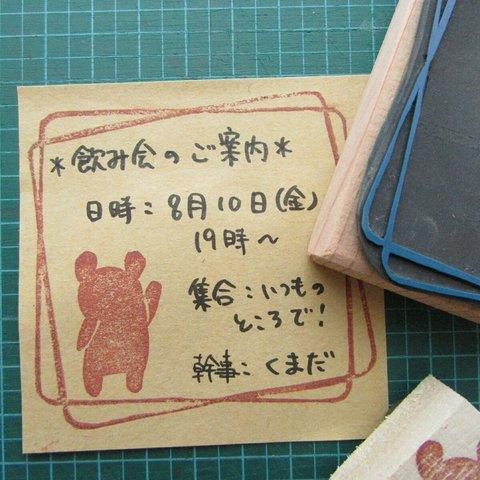 *飲み会のご案内*
日時：8月10日(金)
19時〜
集合：いつもの
ところで！
幹事：くまだ